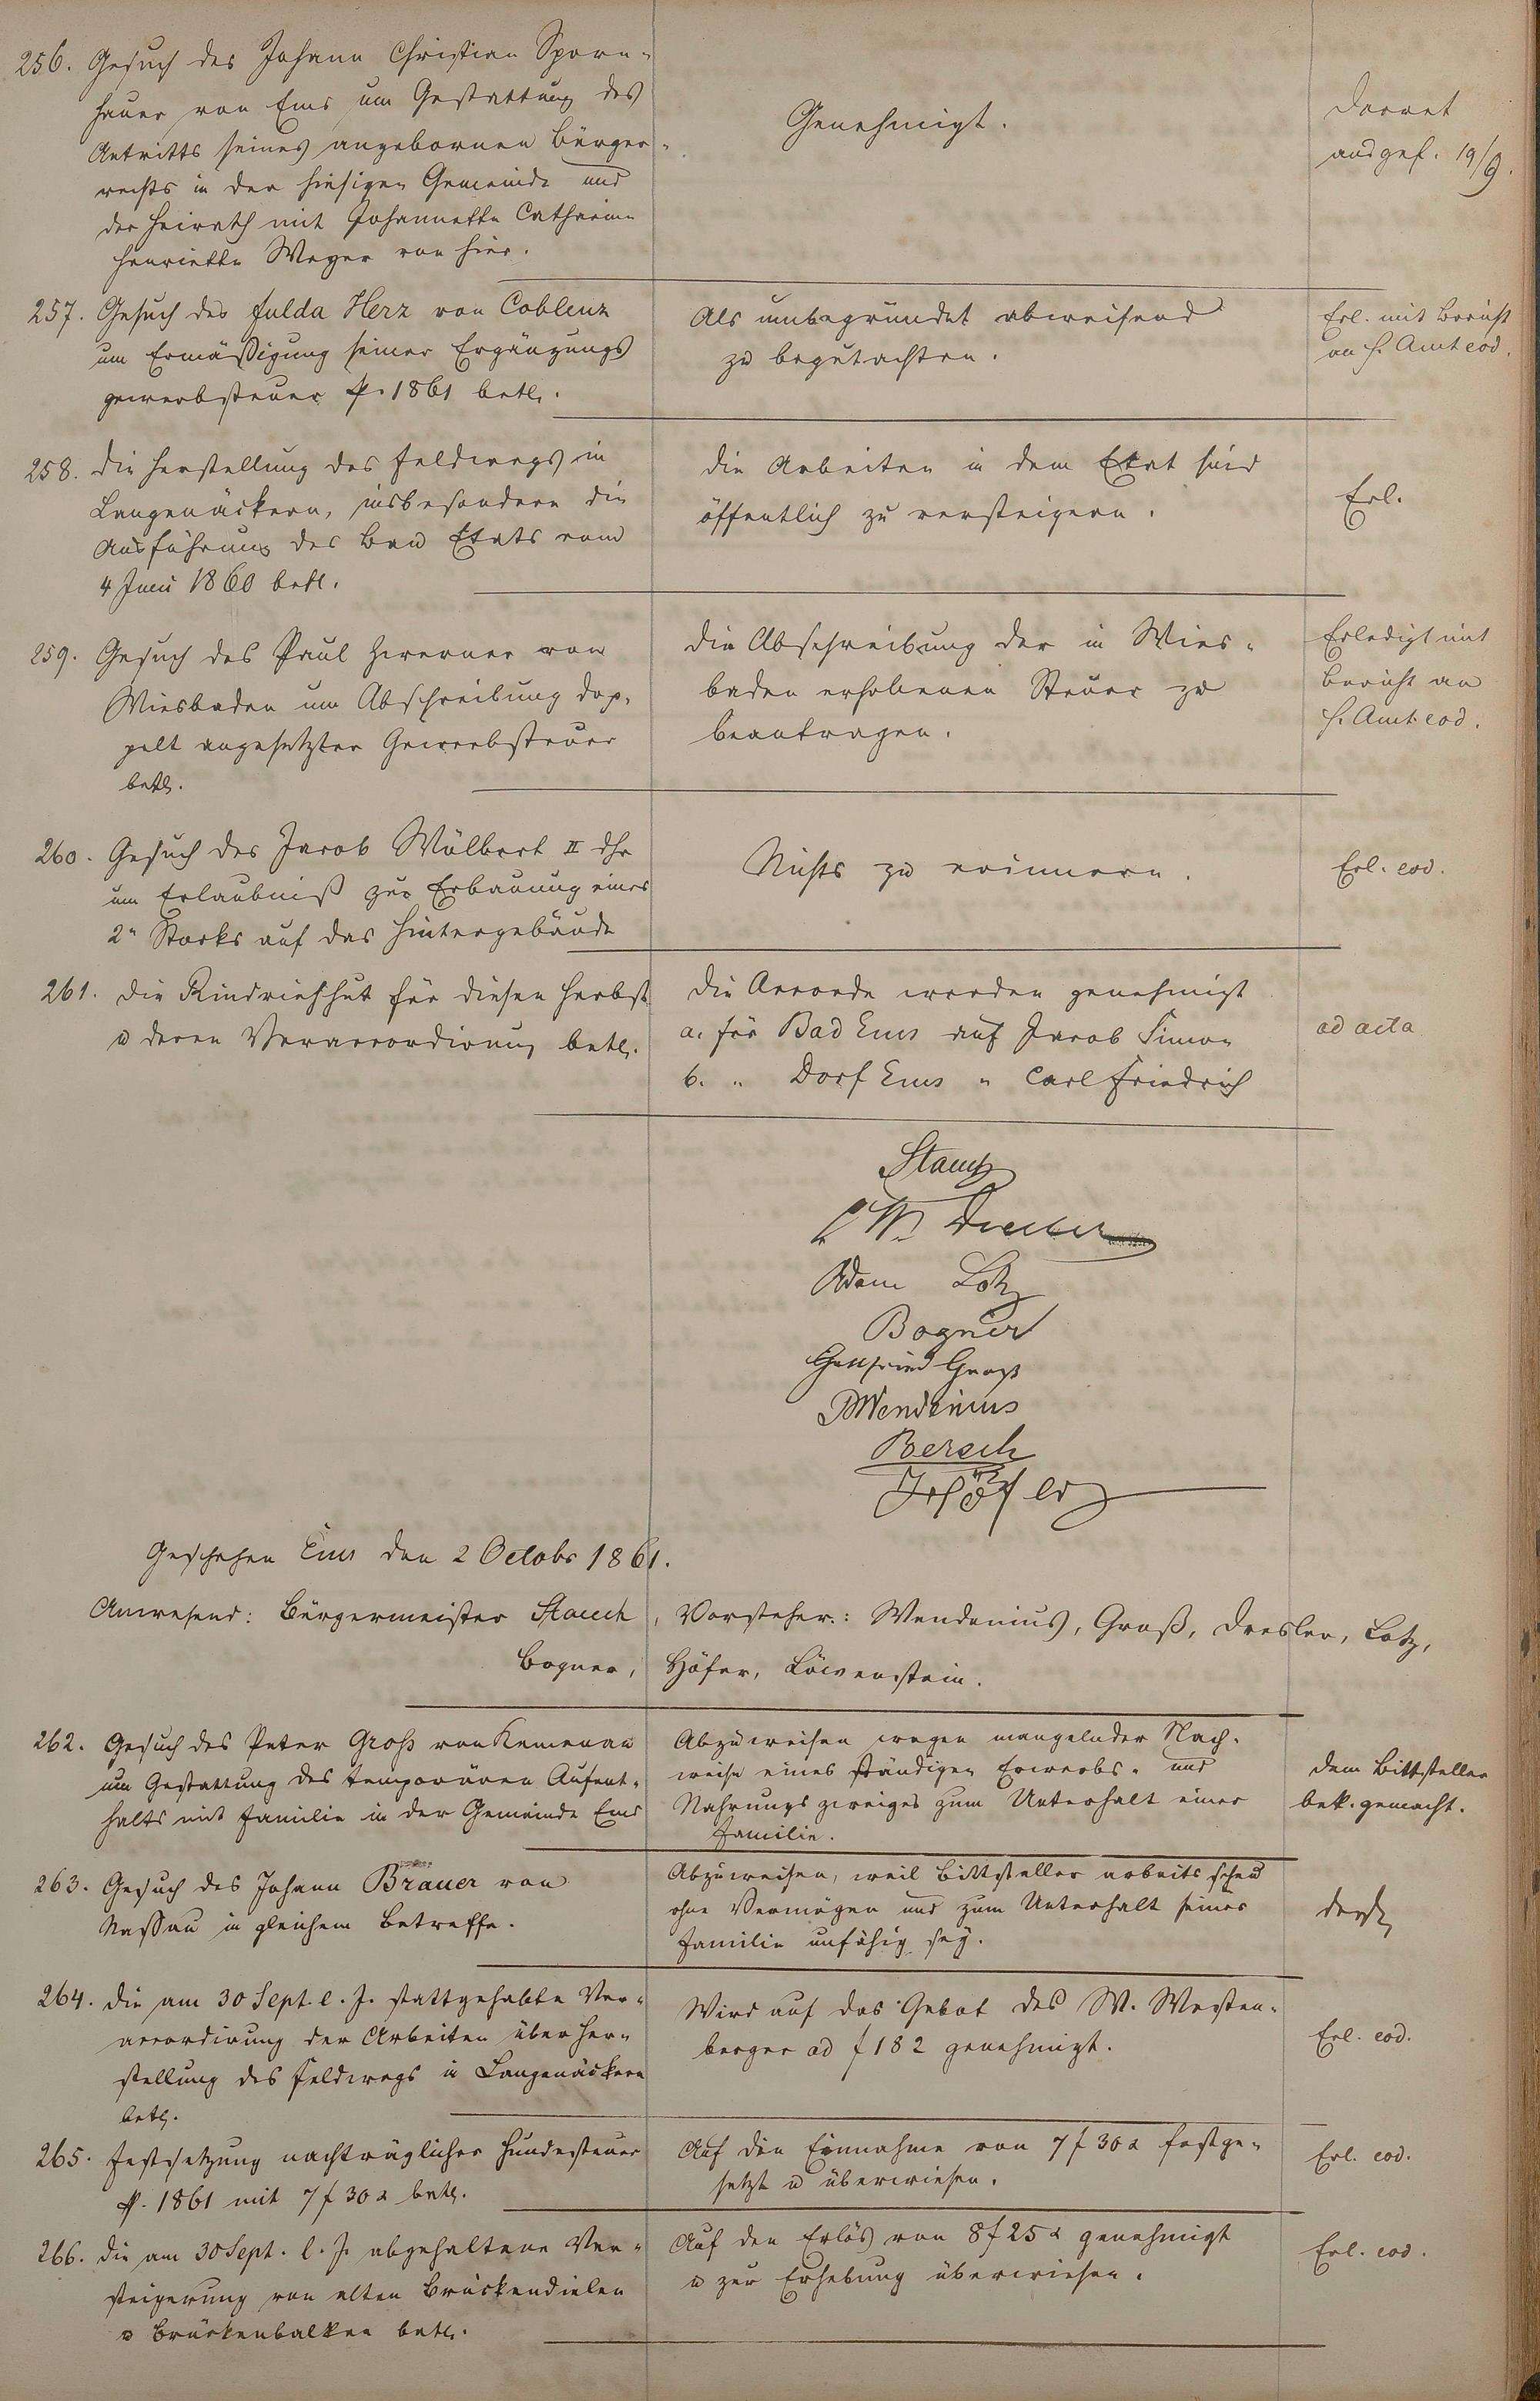 256. Gesuch des Johann Christian Sporn-
hauer von Ems um Gestattung des
Antritts seines angebornen Bürger-
rechts in der hiesigen Gemeinde und
der Heirath mit Johannette Catharine
Henriette Weyer von hier.
Genehmigt.
Decret
ausgef. 19/9.
257. Gesuch des Fulda Herz von Coblenz
um Ermäßigung seiner Ergänzungs
gewerbsteuer p. 1861 betr.
Als unbegründet abweisend
zu begutachten.
Erl. mit Bericht
an H. Amt eod.
258. Die Herstellung des Feldwegs in
Langenäckern, insbesondere die
Ausführung des Bau Etats vom
4 Juni 1860 betr.
Die Arbeiten in dem Etat sind
öffentlich zu versteigern.
Erl.
259. Gesuch des Paul Zwerner von
Wiesbaden um Abschreibung dop-
pelt angesetzter Gewerbsteuer
betr.
Die Abschreibung der in Wies-
baden erhobenen Steuer zu
beantragen.
Erledigt mit
Bericht an
H. Amt eod.
260. Gesuch des Jacob Wülbert II dhr
um Erlaubniß zur Erbauung eines
2n Stocks auf das Hintergebäude
Nichts zu erinnern.
Erl. eod.
261. Die Rindviehhut für diesen Herbst
u deren Veraccordirung betr.
Die Accorde werden genehmigt
a. für Bad Ems auf Jacob Simon
b. " Dorf Ems " Carl Friedrich
ad acta
Stauch
Adam Lotz
Bogner
Gottfried Groß
Wendenius
Bersch
Höfer
Geschehen Ems den 2 Octobr 1861.
Anwesend: Bürgermeister Stauch, Vorsteher: Wendenius, Groß, Dresler, Lotz,
Bogner, Höfer, Löwenstein.
262. Gesuch des Peter Groß von Kemenau
um Gestattung des temporären Aufent-
halts mit Familie in der Gemeinde Ems
Abzuweisen wegen mangelnder Nach-
weise eines ständigen Erwerbs- und
Nahrungszweiges zum Unterhalt einer
Familie.
Dem Bittsteller
bek. gemacht.
263. Gesuch des Johann Brauer von
Nassau in gleichem Betreffe.
Abzuweisen, weil Bittsteller arbeitsscheu
ohne Vermögen und zum Unterhalt seiner
Familie unfähig sey.
264. Die am 30 Sept. l. J. stattgehabte Ver-
accordirung der Arbeiten über Her-
stellung des Feldwegs in Langenäckern
betr.
Wird auf das Gebot des W. Westen-
berger ad f 182 genehmigt.
Erl. eod.
265. Festsetzung nachträglicher Hundesteuer
p. 1861 mit 7 f 30 x betr.
Auf die Einnahme von 7 f 30 x festge-
setzt u überwiesen.
Erl. eod.
266. Die am 30 Sept. l. J. abgehaltene Ver-
steigerung von alten Brückendielen
u Brückenbalken betr.
Auf den Erlös von 8 f 25 x genehmigt
u zur Erhebung überwiesen.
Erl. eod.